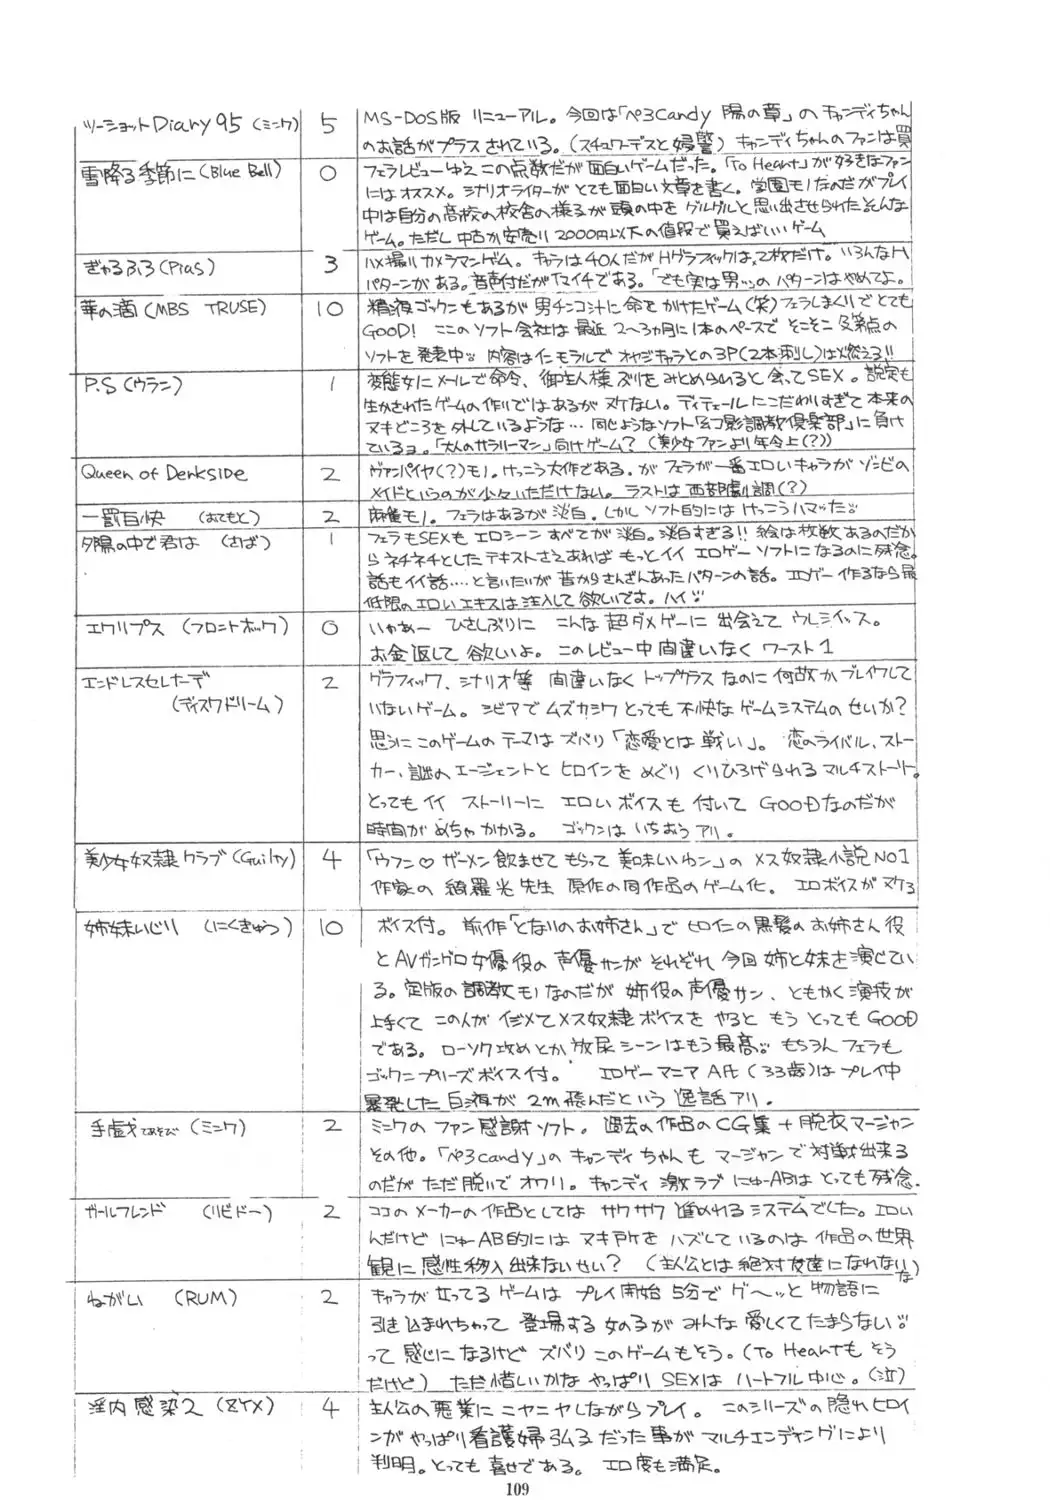 ツーショットDiary95(ミンク)
5
MS-DOS版 リニューアル。今回は「ぺろCandy 陽の章」のキャンディちゃん
のお話がプラスされている。(スチュワーデスと婦警) キャンディちゃんのファンは買
雪降る季節に(Blue Bell)
0
フェラレビューゆえこの点数だが面白いゲームだった。「To Heart」が好きなファン
にはオススメ。シナリオライターがとても面白い文章を書く。学園モノなのだがプレイ
中は自分の高校の校舎の様子が頭の中をグルグルと思い出させられたそんな
ゲーム。ただし中古か安売り2000円以下の値段で買えばいいゲーム
ぎゃるふろ(Pias)
3
ハメ撮りカメラマンゲム。キャラは40人だがHグラフィックは、2枚だけ。いろんなH
パターンがある。音声付だがイマイチである。「でも実は男ッ」のパターンはやめてよ。
華の滴(MBS TRUSE)
10
精液ゴックンもあるが男チンコ汁に命をかけたゲーム(笑)フェラしまくりでとても
GOOD! ここのソフト会社は最近2〜3か月に1本のペースでそこそこ及第点の
ソフトを発表中。内容はインモラルでオヤジキャラとの3P(2本刺し)は燃える!!
P.S(ウラン)
1
変態女にメールで命令、御主人様ぶりをみとめられると会ってSEX。設定も
生かされたゲームの作りではあるがヌケない。ディテールにこだわりすぎて本来の
ヌキどころを外しているような…同じようなソフト「幻影調教倶楽部」に負け
ているョ。「大人のサラリーマン」向けゲーム? (美少女ファンより年令上(?))
Queen of Derkside
2
ヴァンパイヤ(?)モノ。けっこう大作である。がフェラが一番エロいキャラがゾンビの
メイドというのが少々いただけない。ラストは西部劇調(?)
一罰百快 (おてもと)
2
麻雀モノ。フェラはあるが淡白。しかしソフト的にはけっこうハマッた
夕陽の中で君は (さば)
1
フェラもSEXもエロシーンすべてが淡白。淡白すぎる!! 絵は枚数あるのだか
らネチネチとしたテキストさえあればもっとイイ エロゲーソフトになるのに残念。
話もイイ話‥‥と言いたいが昔からさんざんあったパターンの話。エロゲー作るなら最
低限のエロいエキスは注入して欲しいです。ハイ
エクリプス (フロントホック)
0
いやあー ひさしぶりに こんな超ダメゲーに出会えてウレシイッス。
お金返して欲しいよ。このレビュー中間違いなくワースト1
エンドレスセレナーデ
(ディスクドリーム)
2
グラフィック、シナリオ等 間違いなくトップクラスなのに何故かブレイクして
いないゲーム。シビアでムズカシクとっても不快なゲームシステムのせいか?
思うにこのゲームのテーマはズバリ「恋愛とは戦い」。恋のライバル、ストー
カー、謎のエージェントとヒロインをめぐりくりひろげられるマルチストーリー。
とってもイイ ストーリーに エロいボイスも付いて GOODなのだが
時間がめちゃかかる。 ゴックンはいちおうアリ。
美少女奴隷クラブ(Guilty)
4
「ウフン♡ザーメン飲ませてもらって美味しいわン」のメス奴隷小説NO1
作家の綺羅光先生原作の同作品のゲーム化。エロボイスがヌケる
姉妹いじり (にくきゅう)
10
ボイス付。前作「となりのお姉さん」でヒロインの黒髪のお姉さん役
とAVガングロ女優役の声優サンがそれぞれ今回姉と妹を演じてい
る。定版の調教モノなのだが姉役の声優サン、ともかく演技が
上手くてこの人がイジメてメス奴隷ボイスをやるともうとってもGOOD
である。ローソク攻めとか放尿シーンはもう最高。もちろんフェラも
ゴックンプリーズボイス付。 エロゲーマニアA氏(33歳)はプレイ中
暴発した白液が2m飛んだという逸話アリ。
手戯てあそび(ミンク)
2
ミンクのファン感謝ソフト。過去の作品のCG集+脱衣マージャン
その他。「ぺろcandy」のキャンディちゃんもマージャンで対戦出来る
のだがただ脱いでオワリ。キャンディ激ラブにゅーABはとっても残念.
ガールフレンド (リビドー)
2
ココのメーカーの作品としてはサクサク進めれるシステムでした。エロい
んだけどにゅーAB的にはマキドケをハズしているのは作品の世界
観に感性移入出来ないせい? (主人公とは絶対友達になれない)な
ねがい (RUM)
2
キャラが立ってるゲームは プレイ開始5分でグ〜ッと物語に
引き込まれちゃって登場する女の子がみんな愛しくてたまらない
って感じになるけどズバリこのゲームもそう。(To Heartもそう
だけど) ただ惜しいかなやっぱりSEXはハートフル中心。(泣)
淫内感染2(ZYX)
4
主人公の悪業にニヤニヤしながらプレイ。このシリーズの隠れヒロイ
ンがやっぱり看護婦弘子だった事がマルチエンディングにより
判明。とっても喜せである。エロ度も満足。
109